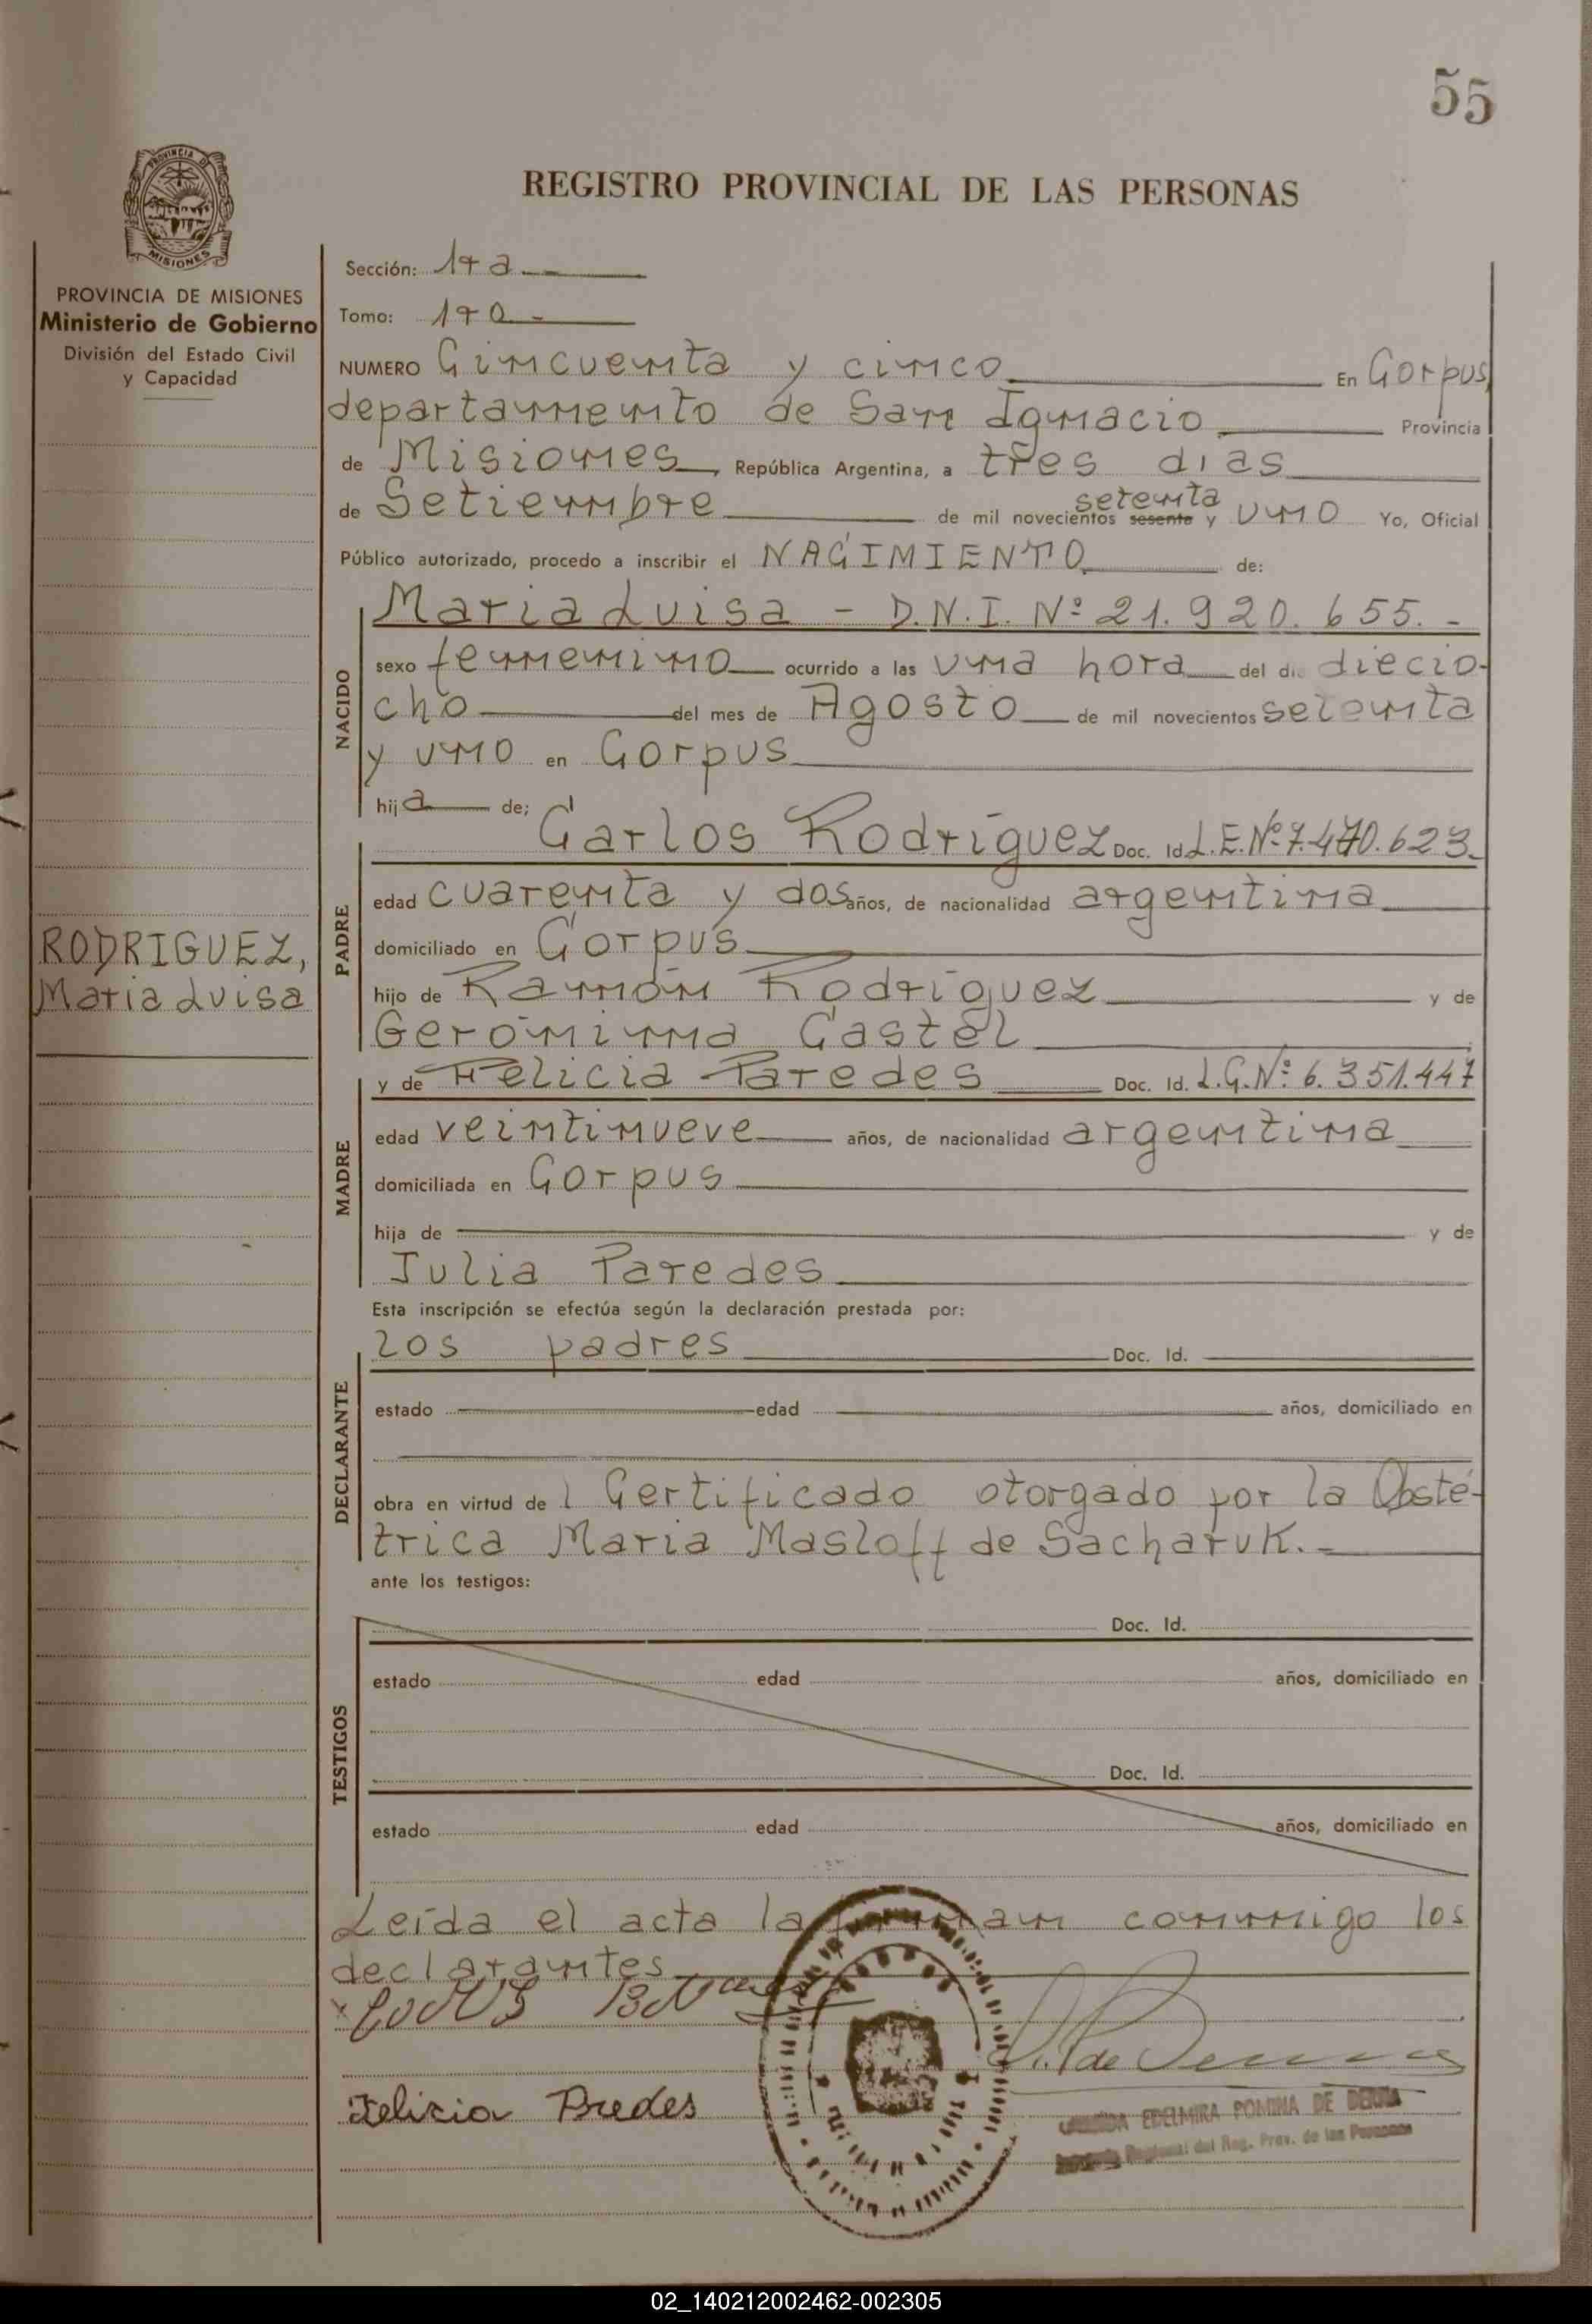 55
REGISTRO PROVINCIAL DE LAS PERSONAS
PROVINCIA DE MISIONES
Ministerio de Gobierno
División del Estado Civil
y Capacidad
RODRIGUEZ,
Maria Luisa
Sección: 1ra.
Tomo: 1ro.-
NUMERO Cincuenta y cinco En Corpus,
departamento de San Ignacio Provincia
de Misiones República Argentina, a tres dias
de Setiembre de mil novecientos sesenta setenta y uno Yo, Oficial
Público autorizado, procedo a inscribir el NACIMIENTO de:
NACIDO
Maria Luisa - D.N.I. Nº 21.920.655.-
sexo femenino ocurrido a las una hora del di diecio-
cho del mes de Agosto de mil novecientos setenta
y uno en Corpus
hija de;
PADRE
Carlos Rodríguez Doc. Id. L.E.Nº 7.470.623.
edad cuarenta y dos años, de nacionalidad argentina
domiciliado en Corpus
hijo de Ramón Rodríguez y de
Gerónima Castel
MADRE
y de Felicia Paredes Doc. Id. L.C.Nº 6.351.447
edad veintinueve años, de nacionalidad argentina
domiciliada en Corpus
hija de y de
Julia Paredes
Esta inscripción se efectúa según la declaración prestada por:
DECLARANTE
los padres Doc. Id.
estado edad años, domiciliado en
obra en virtud de l Certificado otorgado por la Obsté-
trica Maria Masloff de Sacharuk.-
ante los testigos:
TESTIGOS
Doc. Id.
estado edad años, domiciliado en
Doc. Id.
estado edad años, domiciliado en
Leída el acta la firman conmigo los
declarantes
Felicia Predes
EDELMIRA POMINA DE
Regional del Reg. Prov. de las Personas
02_140212002462-002305